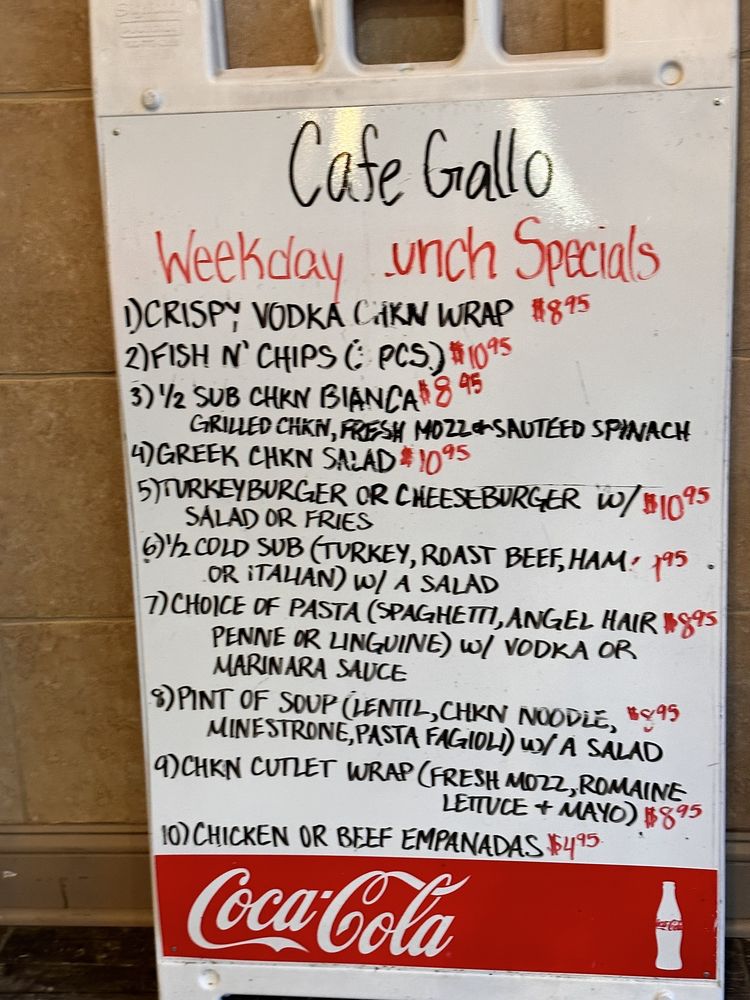 Cafe Gallo
Weekday unch Specials
1) CRISPY VODKA CHKN WRAP $8 95
2) FISH N' CHIPS ( PCS.) $10 95
3) 1/2 SUB CHKN BIANCA $8 95
GRILLED CHKN, FRESH MOZZ + SAUTEED SPINACH
4) GREEK CHKN SALAD $10 95
5) TURKEYBURGER OR CHEESEBURGER W/ $10 95
SALAD OR FRIES
6) 1/2 COLD SUB (TURKEY, ROAST BEEF, HAM 95
OR ITALIAN) W/ A SALAD
7) CHOICE OF PASTA (SPAGHETTI, ANGEL HAIR $8 95
PENNE OR LINGUINE) W/ VODKA OR
MARINARA SAUCE
8) PINT OF SOUP (LENTIL, CHKN NOODLE, $8 95
MINESTRONE, PASTA FAGIOLI) W/ A SALAD
9) CHKN CUTLET WRAP (FRESH MOZZ, ROMAINE
LETTUCE + MAYO) $8 95
10) CHICKEN OR BEEF EMPANADAS $4 95
Coca-Cola
Coca-Cola